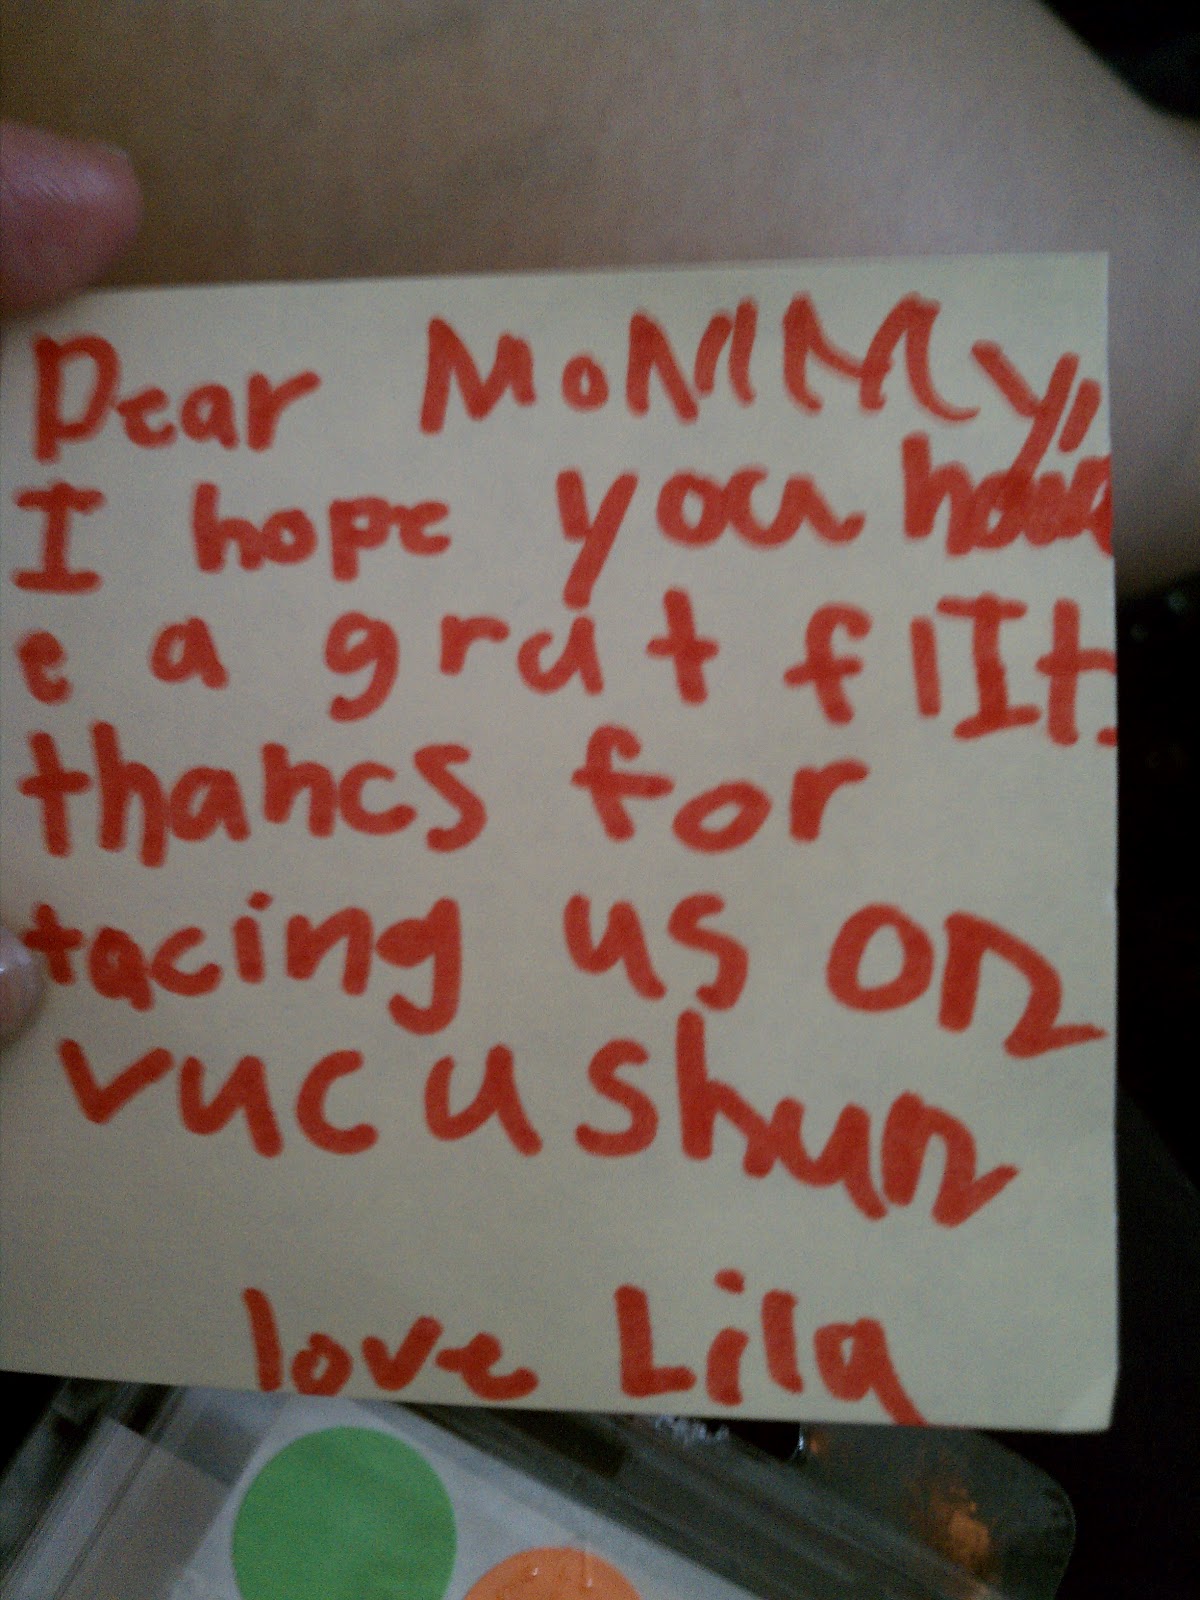 Dear MoMMy,
I hope you hav
e a grat flIt.
thancs for
tacing us on
vucushun
love Lila